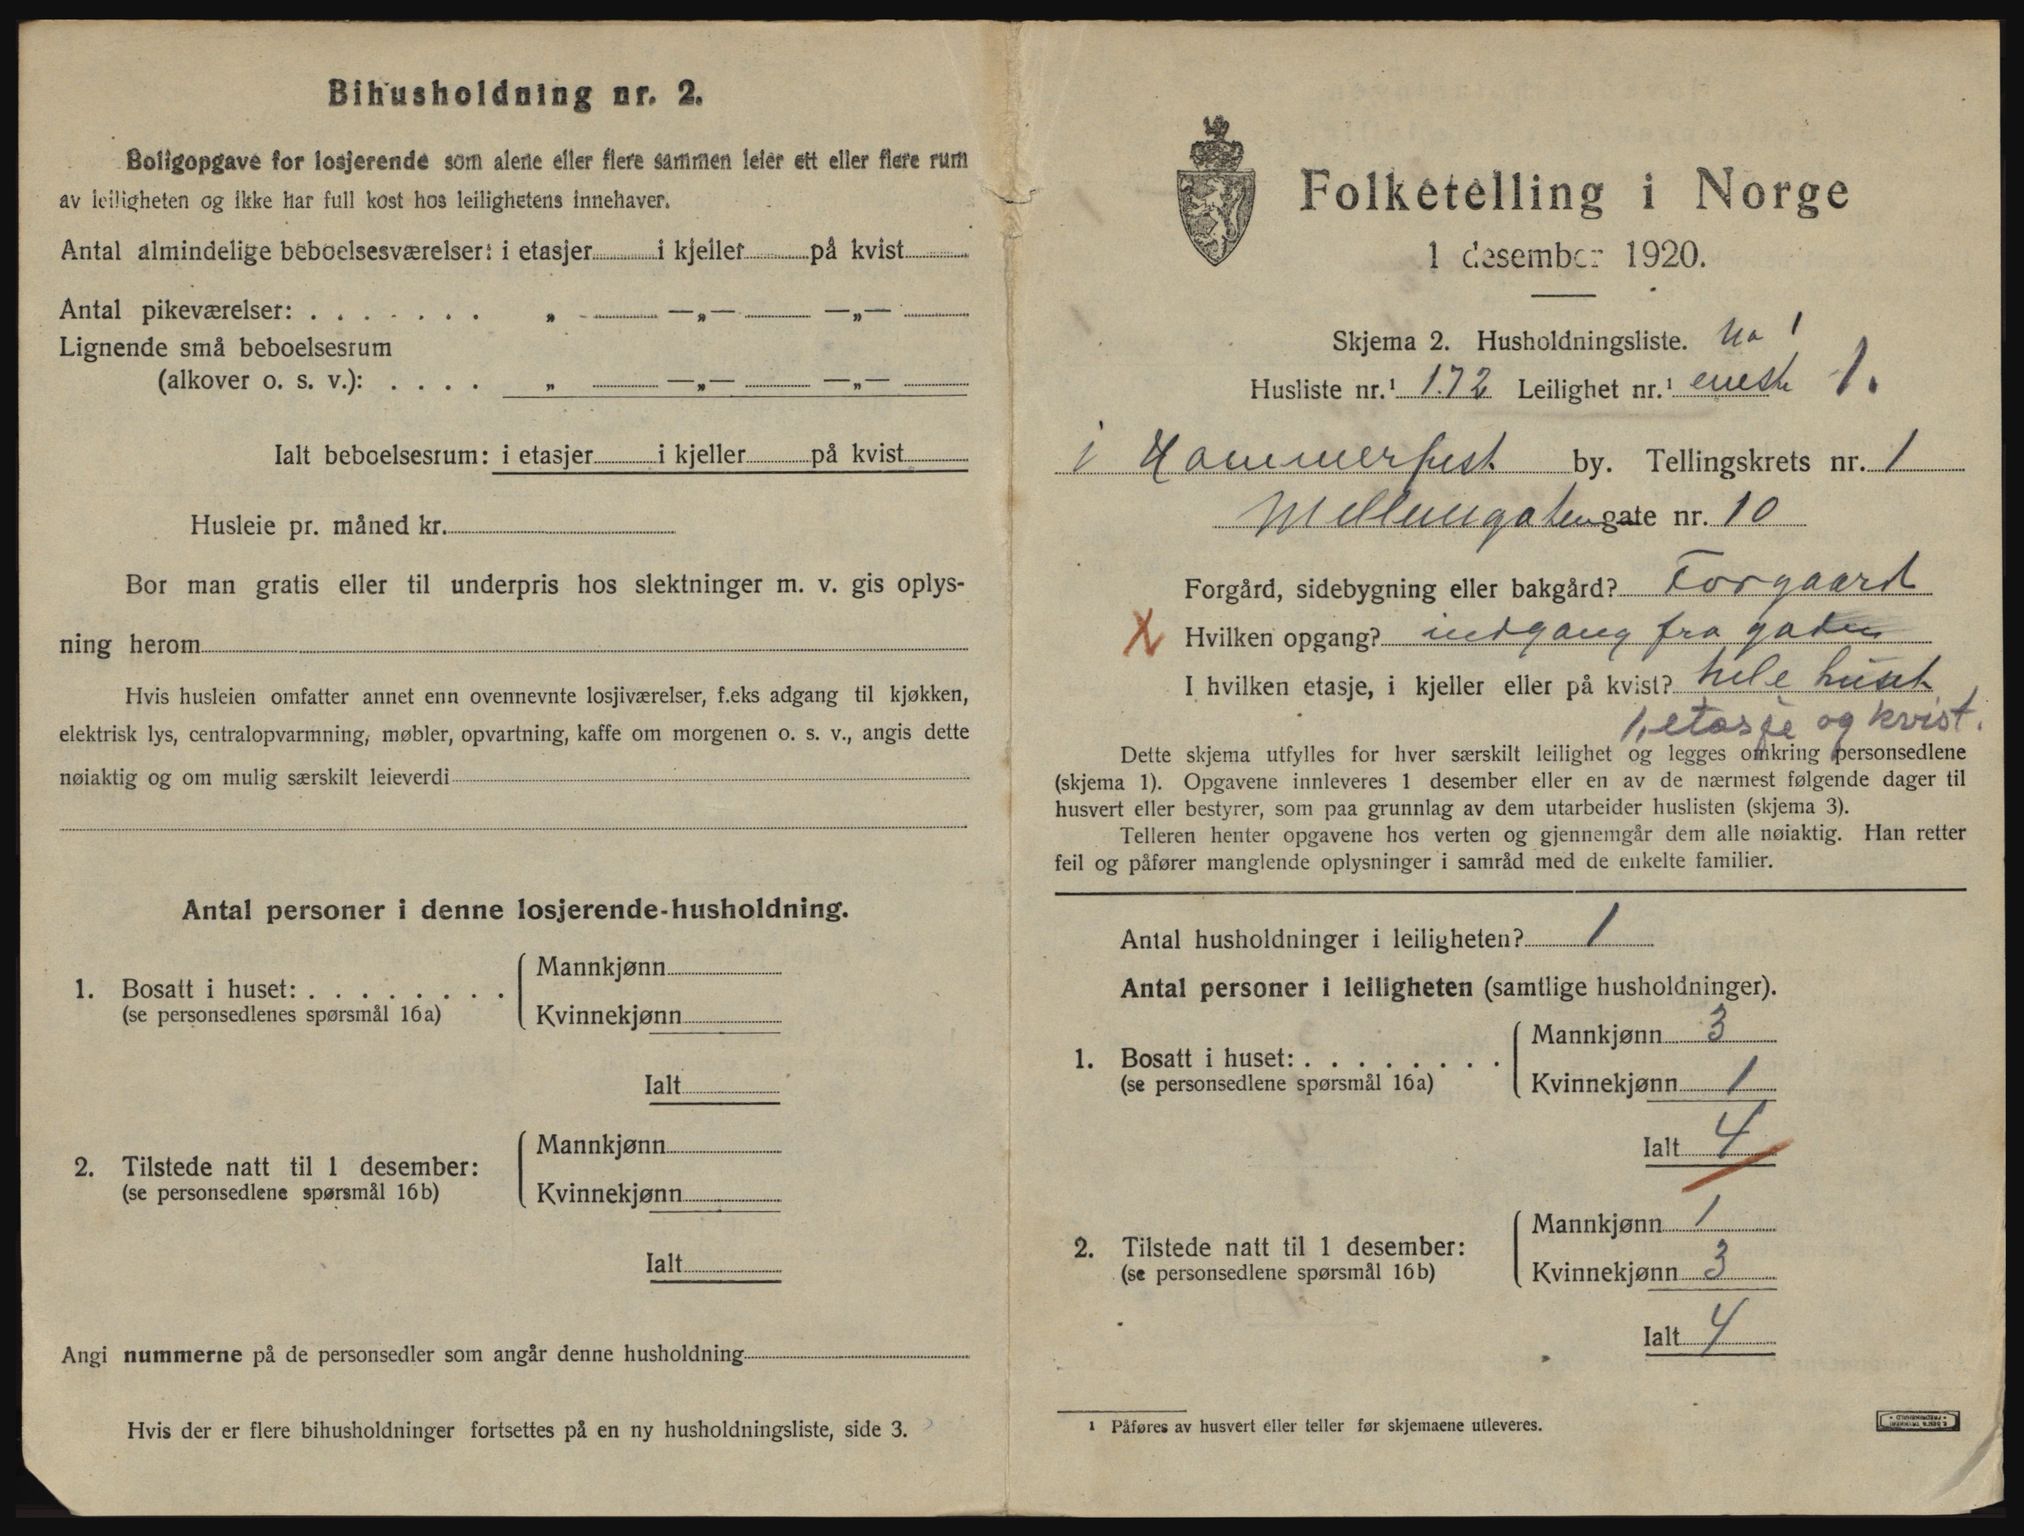 Bihusholdning nr. 2.
Boligopgave for losjerende som alene eller flere sammen leier ett eller flere rum
av leiligheten og ikke har full kost hos leilighetens innehaver.
Antal almindelige beboelsesværelser: i etasjer i kjeller på kvist
Antal pikeværelser: . . . . . . . „ —„— —„—
Lignende små beboelsesrum
(alkover o. s. v.): . . . . „ —„— —„—
Ialt beboelsesrum: i etasjer i kjeller på kvist
Husleie pr. måned kr.
Bor man gratis eller til underpris hos slektninger m. v. gis oplys-
ning herom
Hvis husleien omfatter annet enn ovennevnte losjiværelser, f.eks adgang til kjøkken,
elektrisk lys, centralopvarmning, møbler, opvartning, kaffe om morgenen o. s. v., angis dette
nøiaktig og om mulig særskilt leieverdi
Antal personer i denne losjerende-husholdning.
1. Bosatt i huset: . . . . . . . .
(se personsedlenes spørsmål 16a)
Mannkjønn
Kvinnekjønn
Ialt
2. Tilstede natt til 1 desember:
(se personsedlene spørsmål 16b)
Mannkjønn
Kvinnekjønn
Ialt
Angi nummerne på de personsedler som angår denne husholdning
Hvis der er flere bihusholdninger fortsettes på en ny husholdningsliste, side 3.
Folketelling i Norge
1 desember 1920.
Skjema 2. Husholdningsliste. No 1
Husliste nr.¹ 172 Leilighet nr.¹ enest 1.
i Hammerfest by. Tellingskrets nr. 1
Mellemgaten gate nr. 10
Forgård, sidebygning eller bakgård? Forgaard
X Hvilken opgang? indgang fra gaden
I hvilken etasje, i kjeller eller på kvist? hele huset
1. etasje og kvist.
Dette skjema utfylles for hver særskilt leilighet og legges omkring personsedlene
(skjema 1). Opgavene innleveres 1 desember eller en av de nærmest følgende dager til
husvert eller bestyrer, som paa grunnlag av dem utarbeider huslisten (skjema 3).
Telleren henter opgavene hos verten og gjennemgår dem alle nøiaktig. Han retter
feil og påfører manglende oplysninger i samråd med de enkelte familier.
Antal husholdninger i leiligheten? 1
Antal personer i leiligheten (samtlige husholdninger).
1. Bosatt i huset: . . . . . . . .
(se personsedlene spørsmål 16a)
Mannkjønn 3
Kvinnekjønn 1
Ialt 4
2. Tilstede natt til 1 desember:
(se personsedlene spørsmål 16b)
Mannkjønn 1
Kvinnekjønn 3
Ialt 4
¹ Påføres av husvert eller teller før skjemaene utleveres.